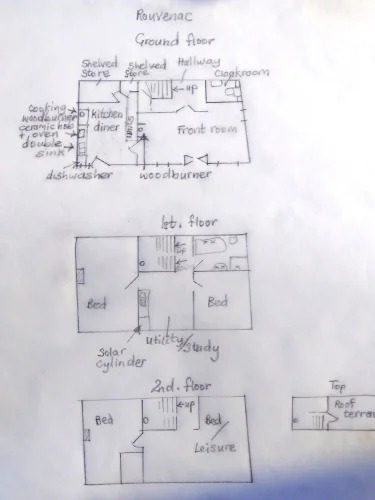 Rouvenac
Ground floor
Shelved
Store
Shelved
Store
Hallway
Cloakroom
up
Cooking
woodburner
ceramic hob
+ oven
double
sink
Kitchen
diner
units
Front room
dishwasher
woodburner
1st. floor
up
down
Bed
Bed
Solar
Cylinder
Utility/Study
2nd. floor
Bed
up
Bed
Leisure
Top
Roof
terrac